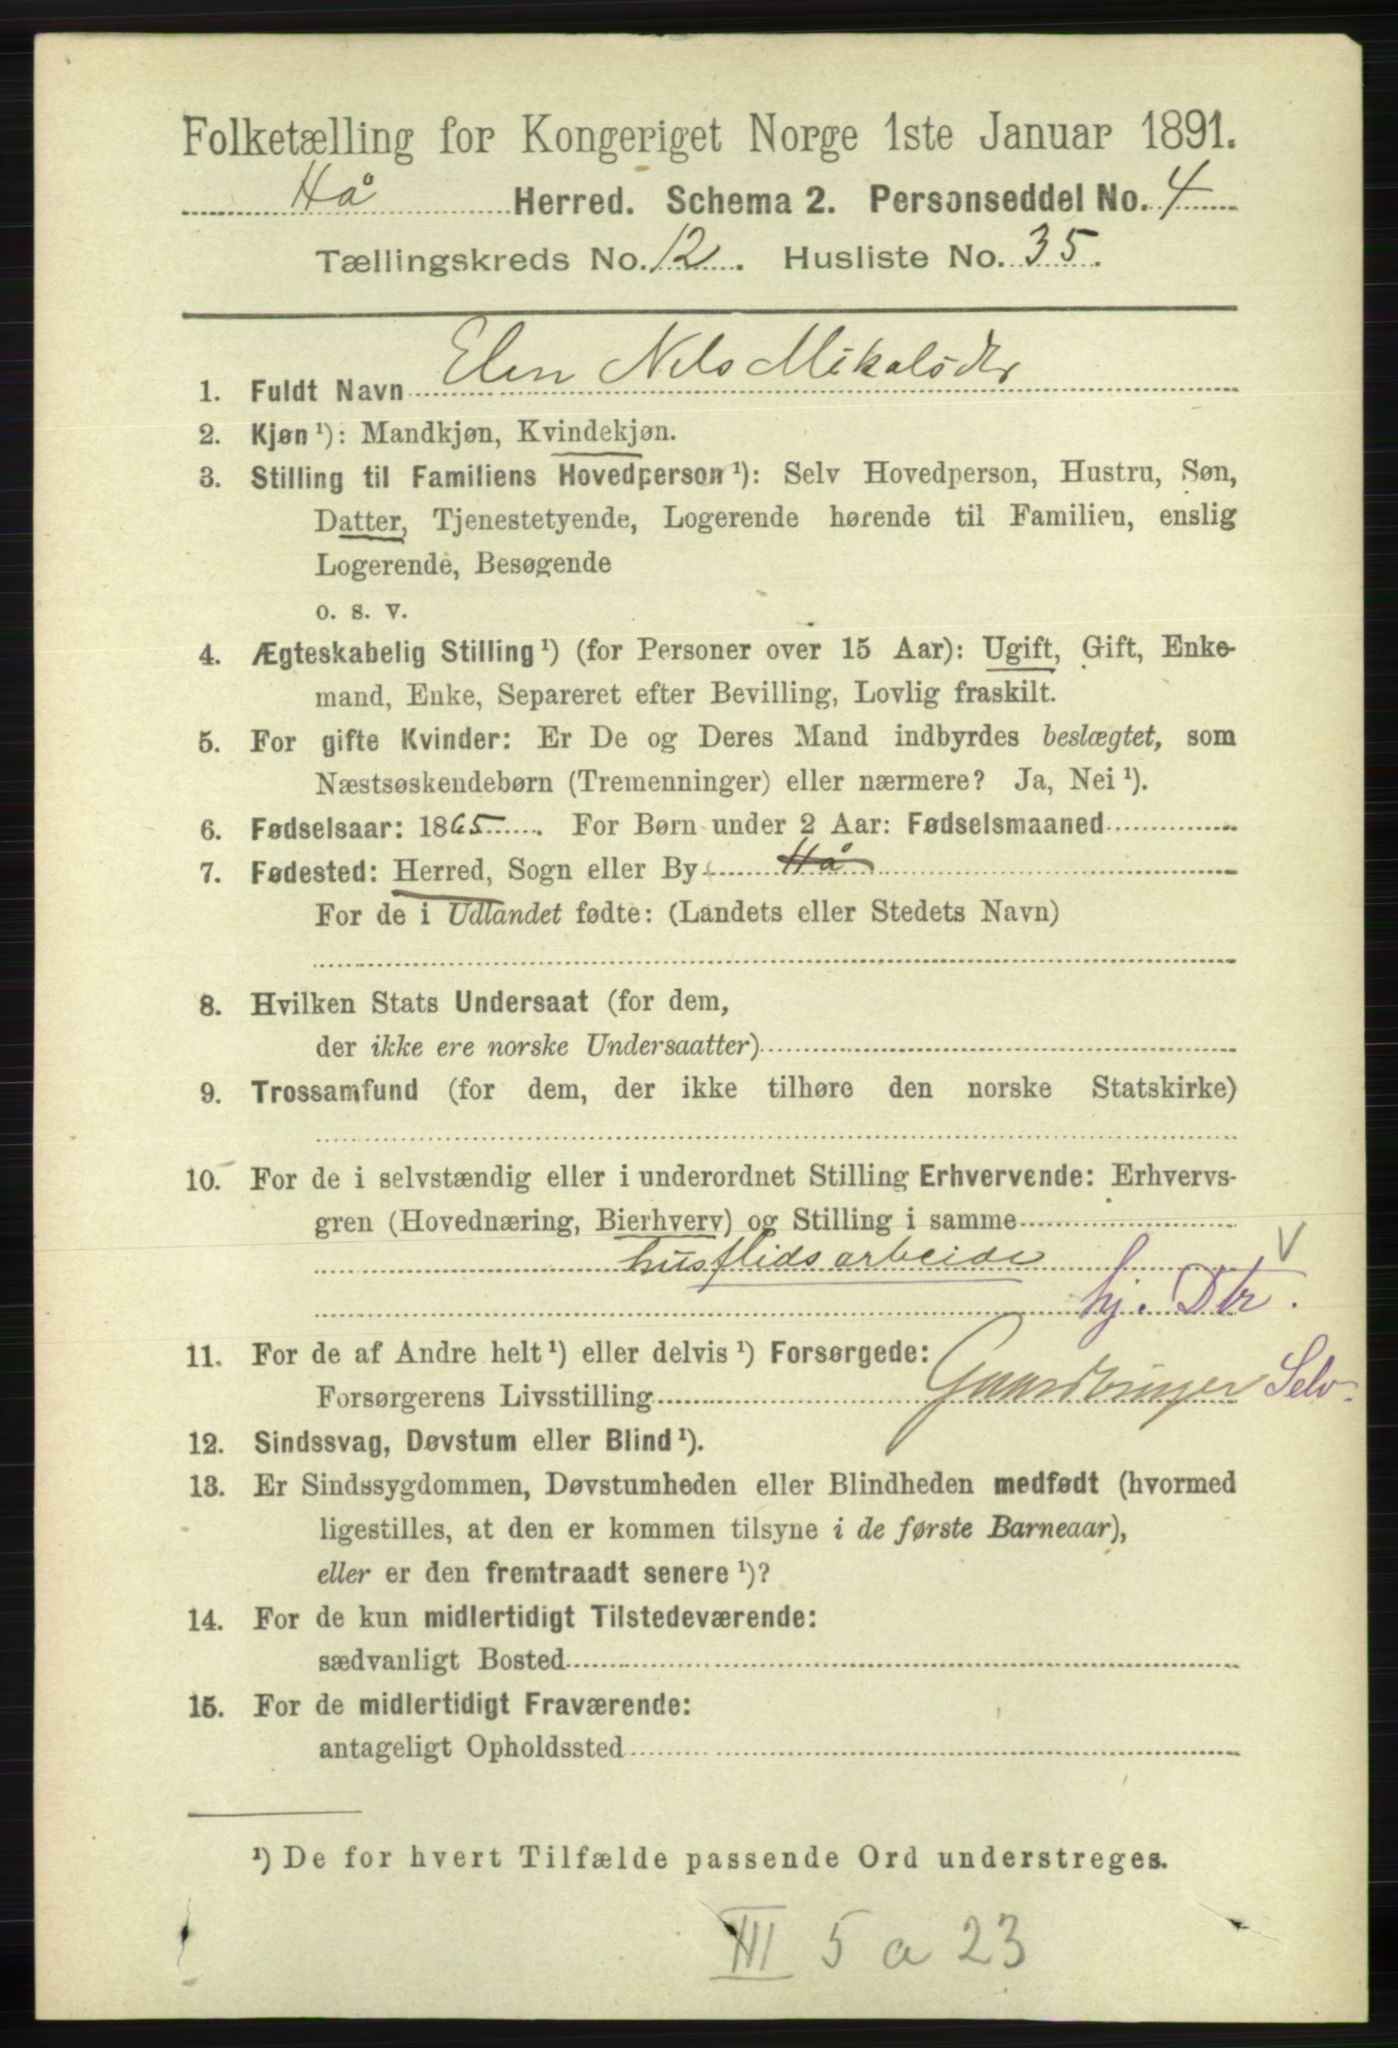 Folketælling for Kongeriget Norge 1ste Januar 1891.
Hå Herred. Schema 2. Personseddel No. 4
Tællingskreds No. 12. Husliste No. 35.
1. Fuldt Navn Elen Nels Mikalsdtr
2. Kjøn ¹): Mandkjøn, Kvindekjøn.
3. Stilling til Familiens Hovedperson ¹): Selv Hovedperson, Hustru, Søn,
Datter, Tjenestetyende, Logerende hørende til Familien, enslig
Logerende, Besøgende
o. s. v.
4. Ægteskabelig Stilling ¹) (for Personer over 15 Aar): Ugift, Gift, Enke-
mand, Enke, Separeret efter Bevilling, Lovlig fraskilt.
5. For gifte Kvinder: Er De og Deres Mand indbyrdes beslægtet, som
Næstsøskendebørn (Tremenninger) eller nærmere? Ja, Nei ¹).
6. Fødselsaar: 1865. For Børn under 2 Aar: Fødselsmaaned
7. Fødested: Herred, Sogn eller By Hå
For de i Udlandet fødte: (Landets eller Stedets Navn)
8. Hvilken Stats Undersaat (for dem,
der ikke ere norske Undersaatter)
9. Trossamfund (for dem, der ikke tilhøre den norske Statskirke)
10. For de i selvstændig eller i underordnet Stilling Erhvervende: Erhvervs-
gren (Hovednæring, Bierhverv) og Stilling i samme
husflidsarbeide
hj. Dtr.
11. For de af Andre helt ¹) eller delvis ¹) Forsørgede:
Forsørgerens Livsstilling Gaardbruger Selv
12. Sindssvag, Døvstum eller Blind ¹).
13. Er Sindssygdommen, Døvstumheden eller Blindheden medfødt (hvormed
ligestilles, at den er kommen tilsyne i de første Barneaar),
eller er den fremtraadt senere ¹)?
14. For de kun midlertidigt Tilstedeværende:
sædvanligt Bosted
15. For de midlertidigt Fraværende:
antageligt Opholdssted
¹) De for hvert Tilfælde passende Ord understreges.
III 5 a 23